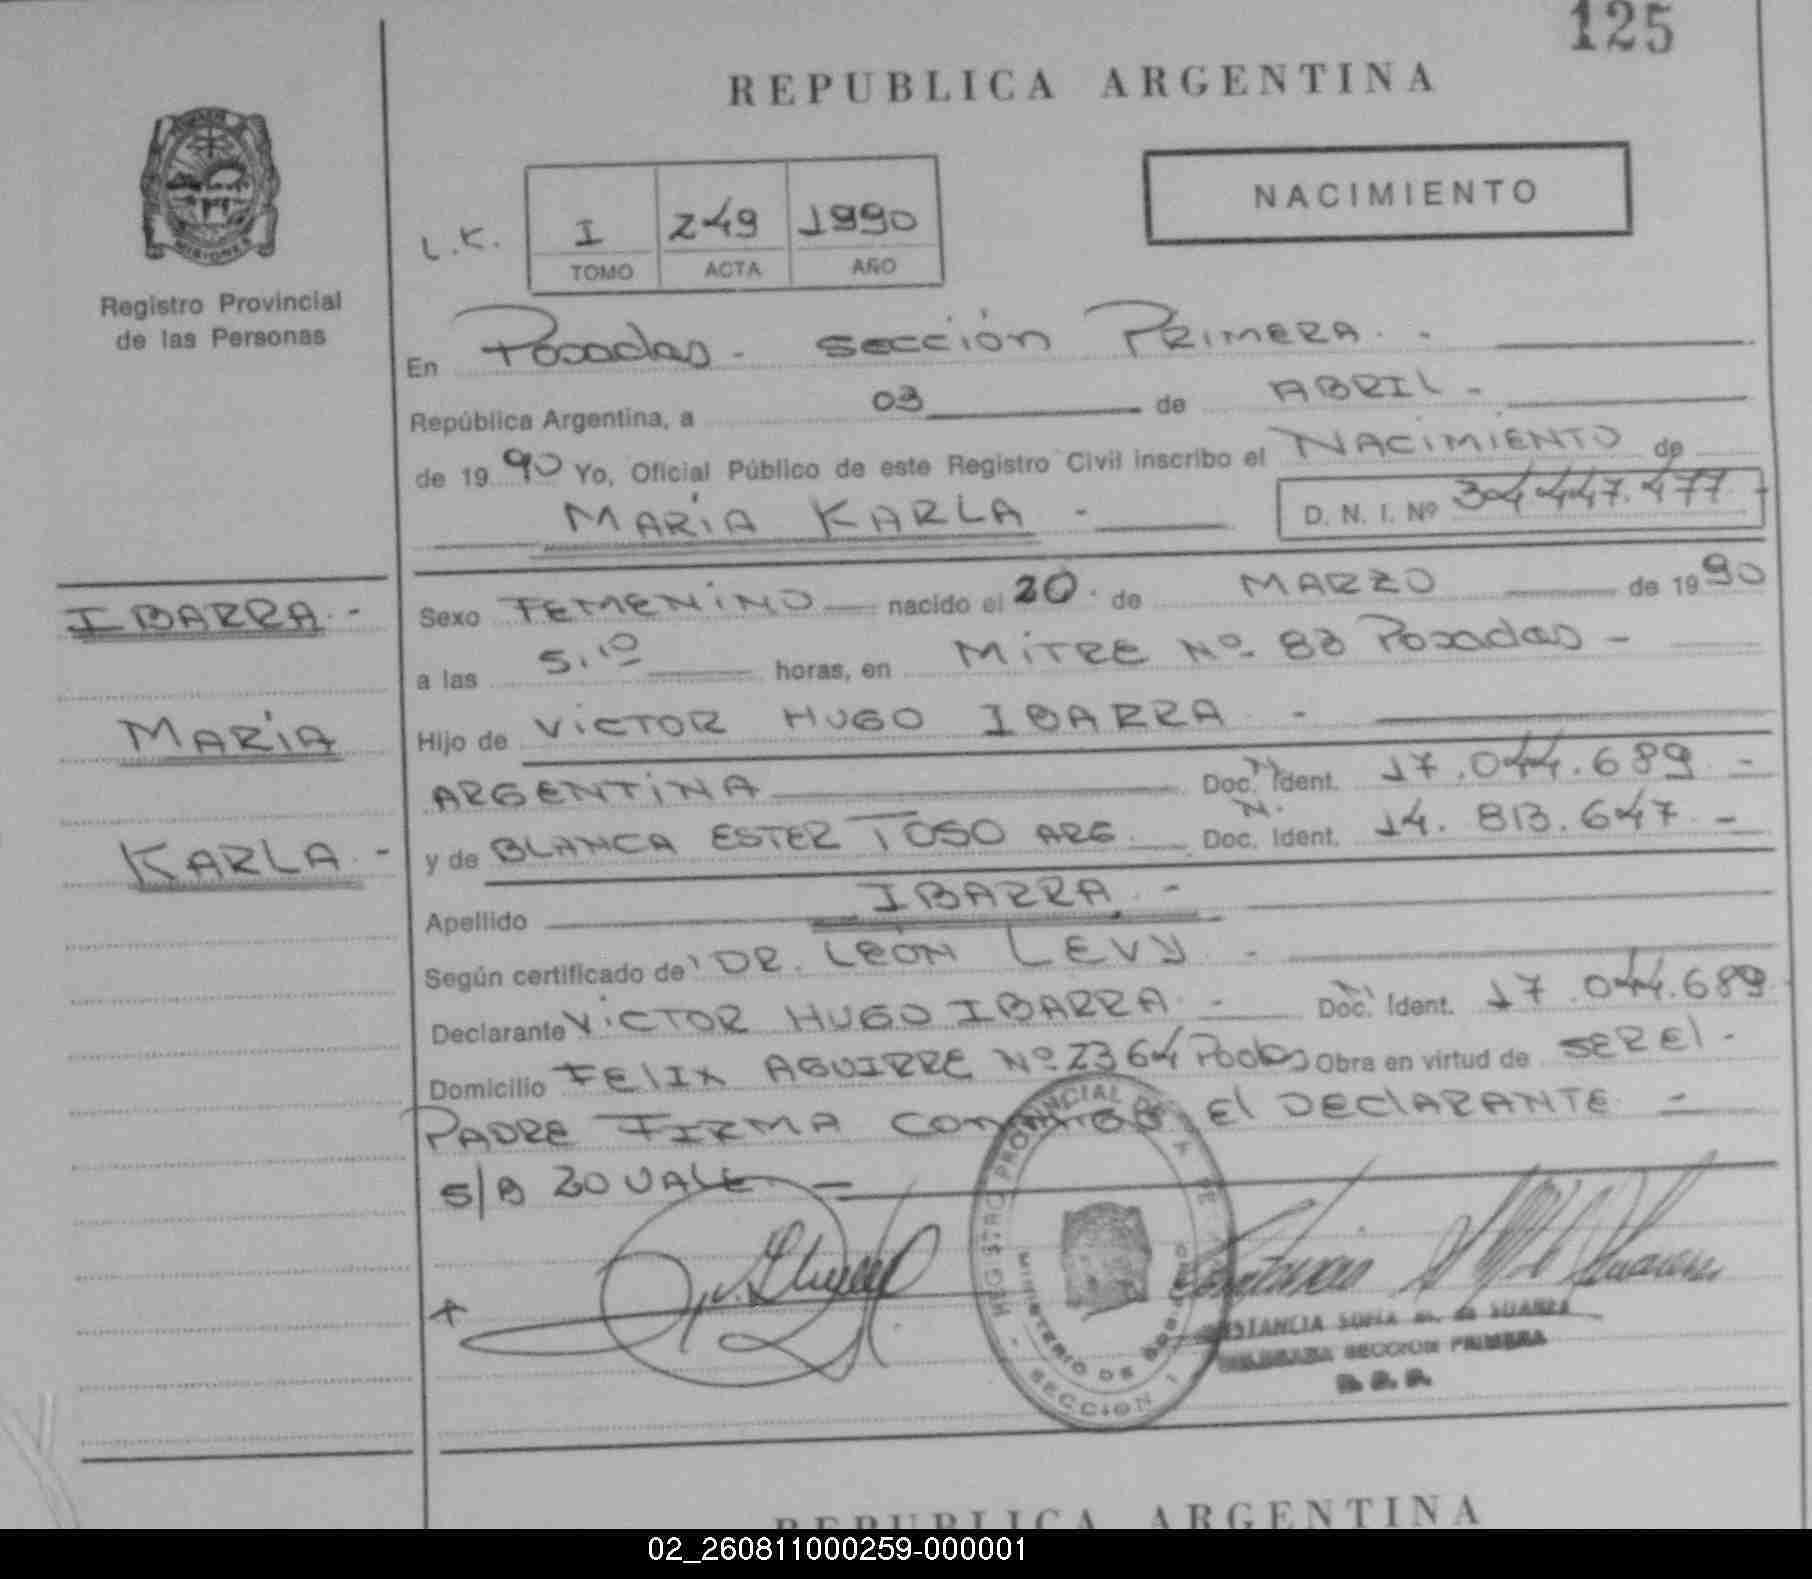 125
REPUBLICA ARGENTINA
MISIONES
Registro Provincial
de las Personas
NACIMIENTO
L.K. I 249 1990
TOMO ACTA AÑO
En Posadas - sección PRIMERA. -
República Argentina, a 03 de ABRIL -
de 1990 Yo, Oficial Público de este Registro Civil inscribo el NACIMIENTO de
MARÍA KARLA - D. N. I. Nº 34.447.477 -
IBARRA. -
MARÍA
KARLA. -
Sexo FEMENINO nacido el 20. de MARZO de 1990
a las 5,10 horas, en MITRE Nº 83 Posadas -
Hijo de VICTOR HUGO IBARRA -
ARGENTINA Doc. N. Ident. 17.044.689 -
y de BLANCA ESTER TOSO ARG. Doc. N. Ident. 14.813.647 -
Apellido IBARRA. -
Según certificado de DR. LEÓN LEVY -
Declarante VICTOR HUGO IBARRA - Doc. Ident. 17.044.689
Domicilio FELIX AGUIRRE Nº 2364 Obra en virtud de SER El -
PADRE FIRMA El DEClARANTE -
S/B 20 VALE -
REGISTRO PROVINCIAL DE
MINISTERIO DE GOBIERNO
SECCION 1
SOFIA M. de SUAREZ
SECCION PRIMERA
REPUBLICA ARGENTINA
02_260811000259-000001